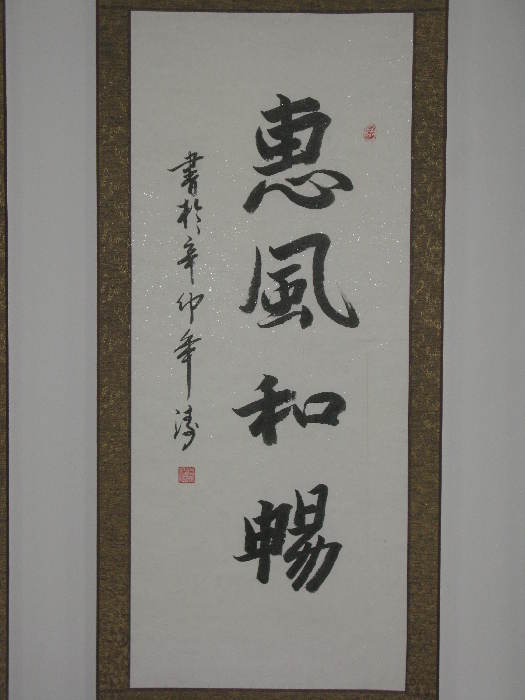 惠風和暢
書於辛卯年濤